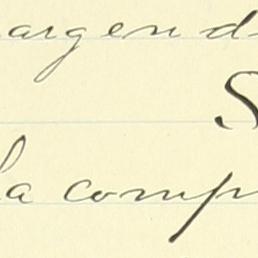 argend
S
la comp